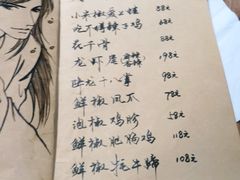 小米椒爱上蛙 88元
吃不腻辣子鸡 58元
花千骨 38元
龙虾尾 香辣 蒜蓉 198元
卧龙千八掌 98元
鲜椒凤爪 78元
泡椒鸡胗 58元
鲜椒肥肠鸡 118元
鲜椒牦牛蹄 108元